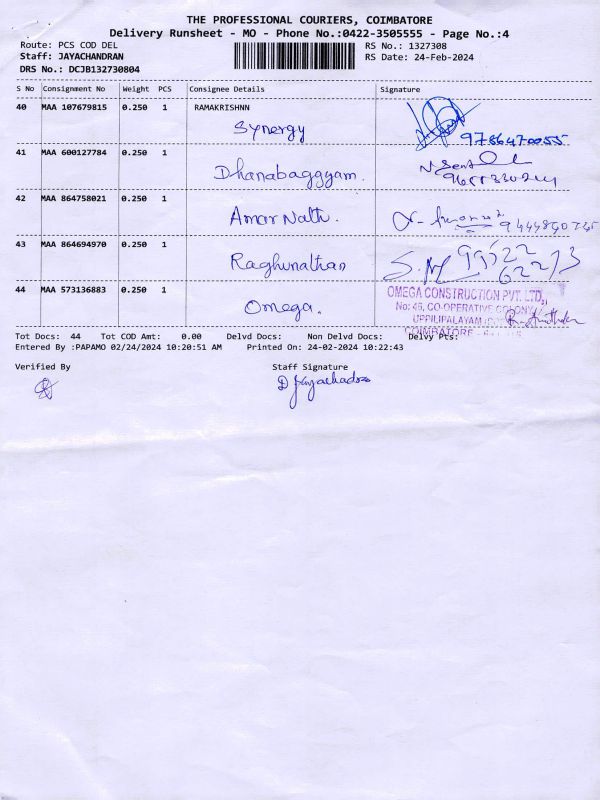 THE PROFESSIONAL COURIERS, COIMBATORE
Delivery Runsheet - MO - Phone No.:0422-3505555 - Page No.:4
Route: PCS COD DEL
RS No.: 1327308
Staff: JAYACHANDRAN
RS Date: 24-Feb-2024
DRS No.: DCJB132730804
S No Consignment No Weight PCS Consignee Details Signature
40 MAA 107679815 0.250 1 RAMAKRISHNN
Synergy
9786470055
41 MAA 600127784 0.250 1
Dhanabaggyam.
42 MAA 864758021 0.250 1
Amar Nath.
43 MAA 864694970 0.250 1
Raghunathan
99522
62273
44 MAA 573136883 0.250 1
Omega.
OMEGA CONSTRUCTION PVT. LTD.,
No: 46, CO-OPERATIVE COLONY
UPPILIPALAYAM
COIMBATORE -
Tot Docs: 44 Tot COD Amt: 0.00 Delvd Docs: Non Delvd Docs: Delvy Pts:
Entered By :PAPAMO 02/24/2024 10:20:51 AM Printed On: 24-02-2024 10:22:43
Verified By Staff Signature